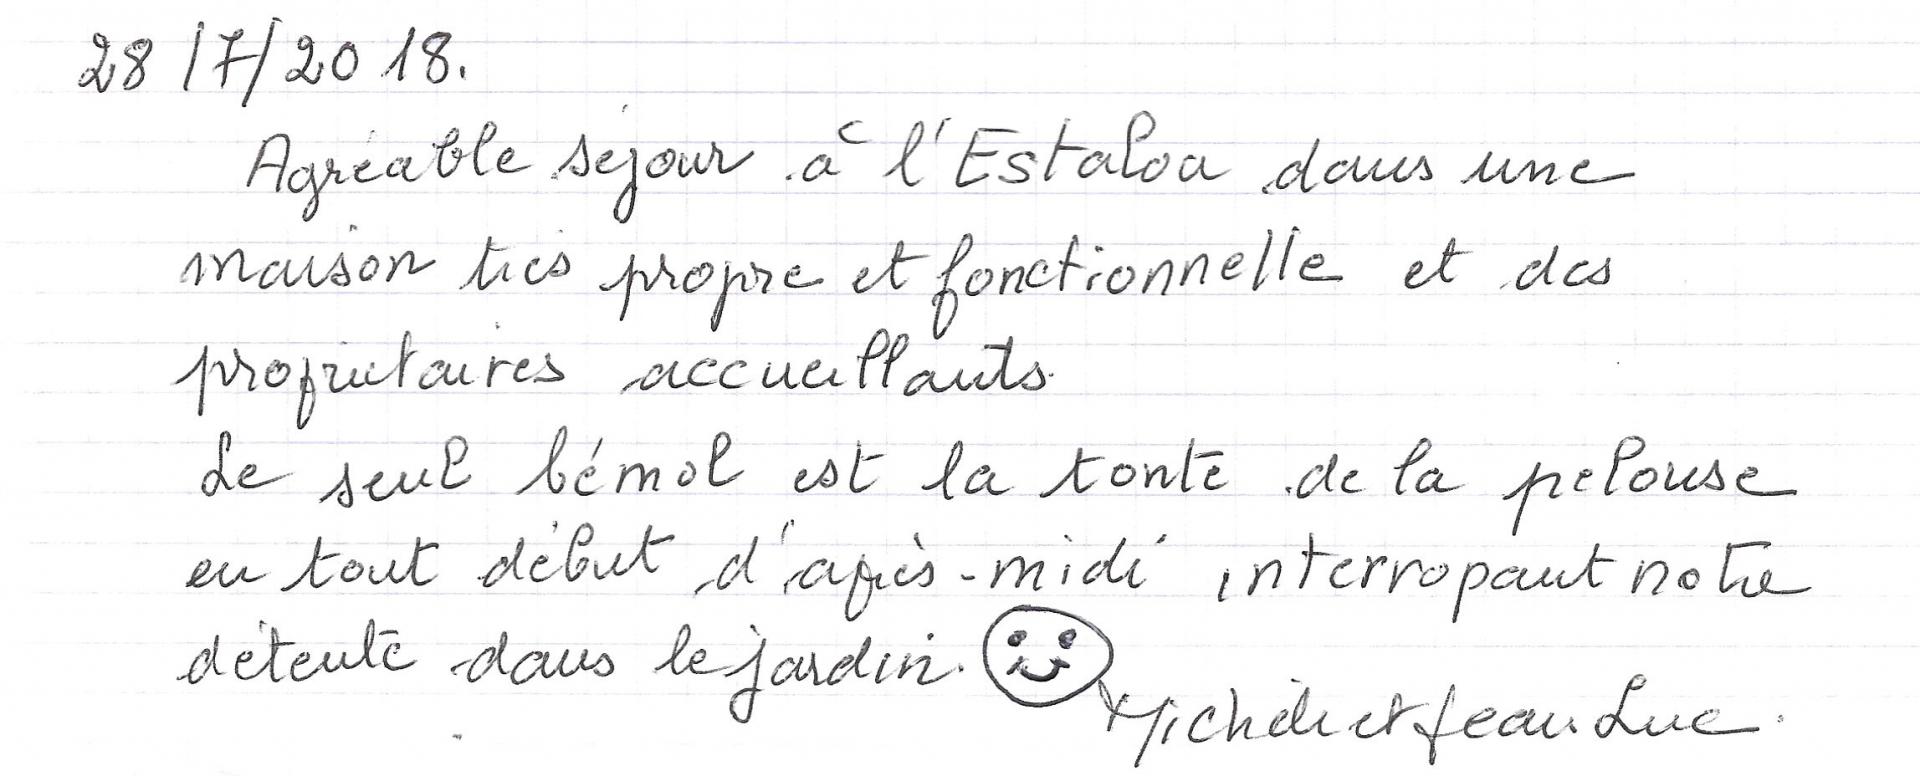 28/7/2018.
Agréable séjour à l'Estaloa dans une
maison très propre et fonctionnelle et des
propriétaires accueillants.
Le seul bémol est la tonte de la pelouse
en tout début d'après-midi interropant notre
détente dans le jardin.
Michèle et Jean Luc.